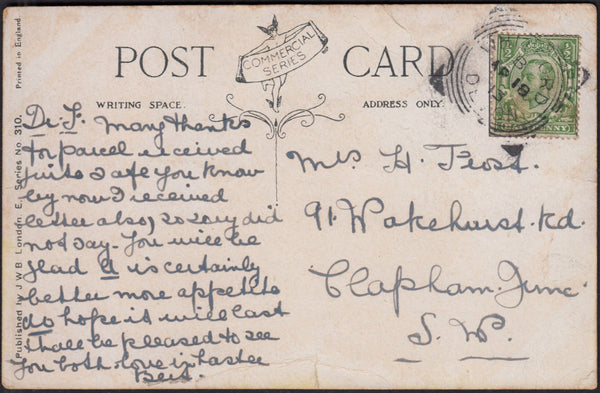 POST CARD
COMMERCIAL
SERIES
WRITING SPACE.
ADDRESS ONLY.
Printed in England.
Published by J W B London. E. Series No. 310.
Dr. F. Many thanks
for parcel received
quite safe you know
by now I received
letter also, so sorry did
not say. You will be
glad A is certainly
better more appetite
do hope it will last
shall be pleased to see
you both love in haste
Bert.
Mrs H. Frost.
91. Wakehurst Rd.
Clapham. Junc
S. W.